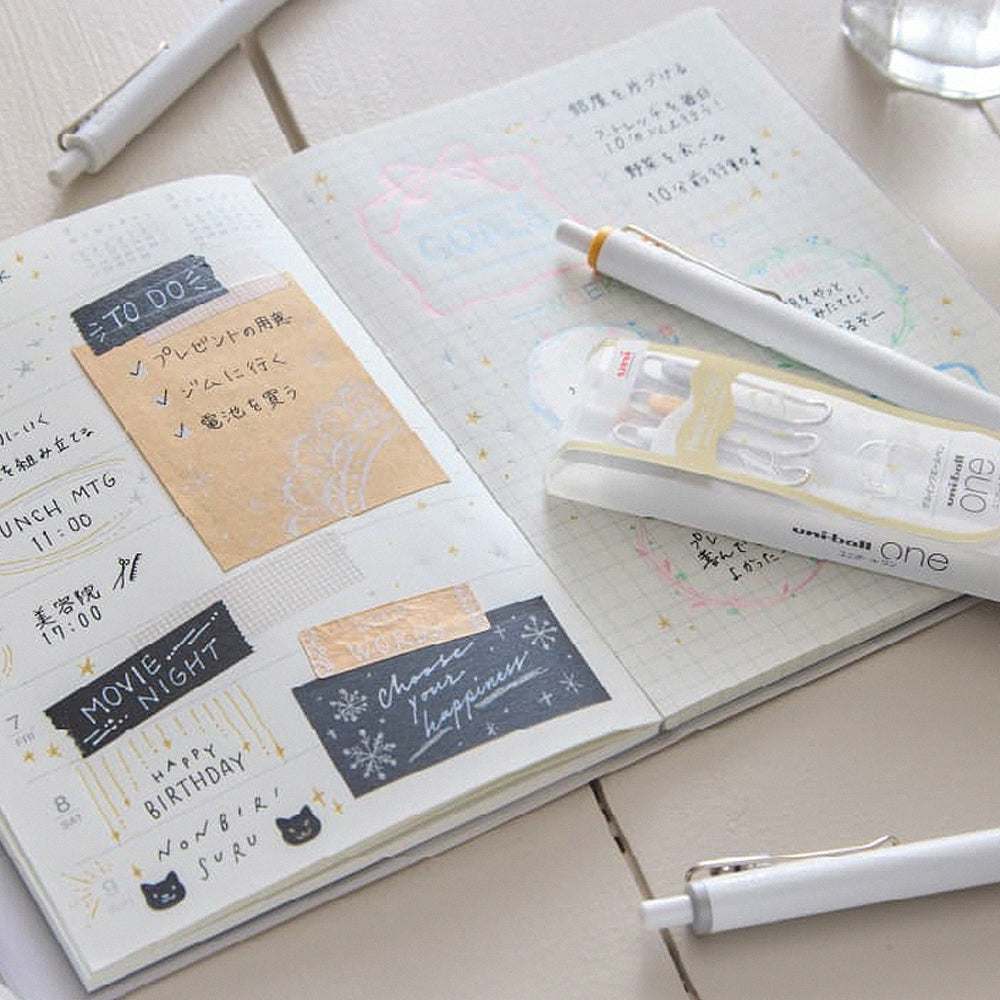 TO DO
プレゼントの用意
ジムに行く
電池を買う
を組み立てる
LUNCH MTG
11:00
美容院
17:00
MOVIE
NIGHT
WORDS
choose
your
happiness
7
FRI
HAPPY
BIRTHDAY
8
SAT
NONBIRI
SURU
9
部屋を片づける
ストレッチを毎日
10分以上行う!
野菜を食べる
10分前行動!
GOALS
uni
uni-ball
one
uni-ball one
ユニボール ワン
プレ
喜んで
よかった